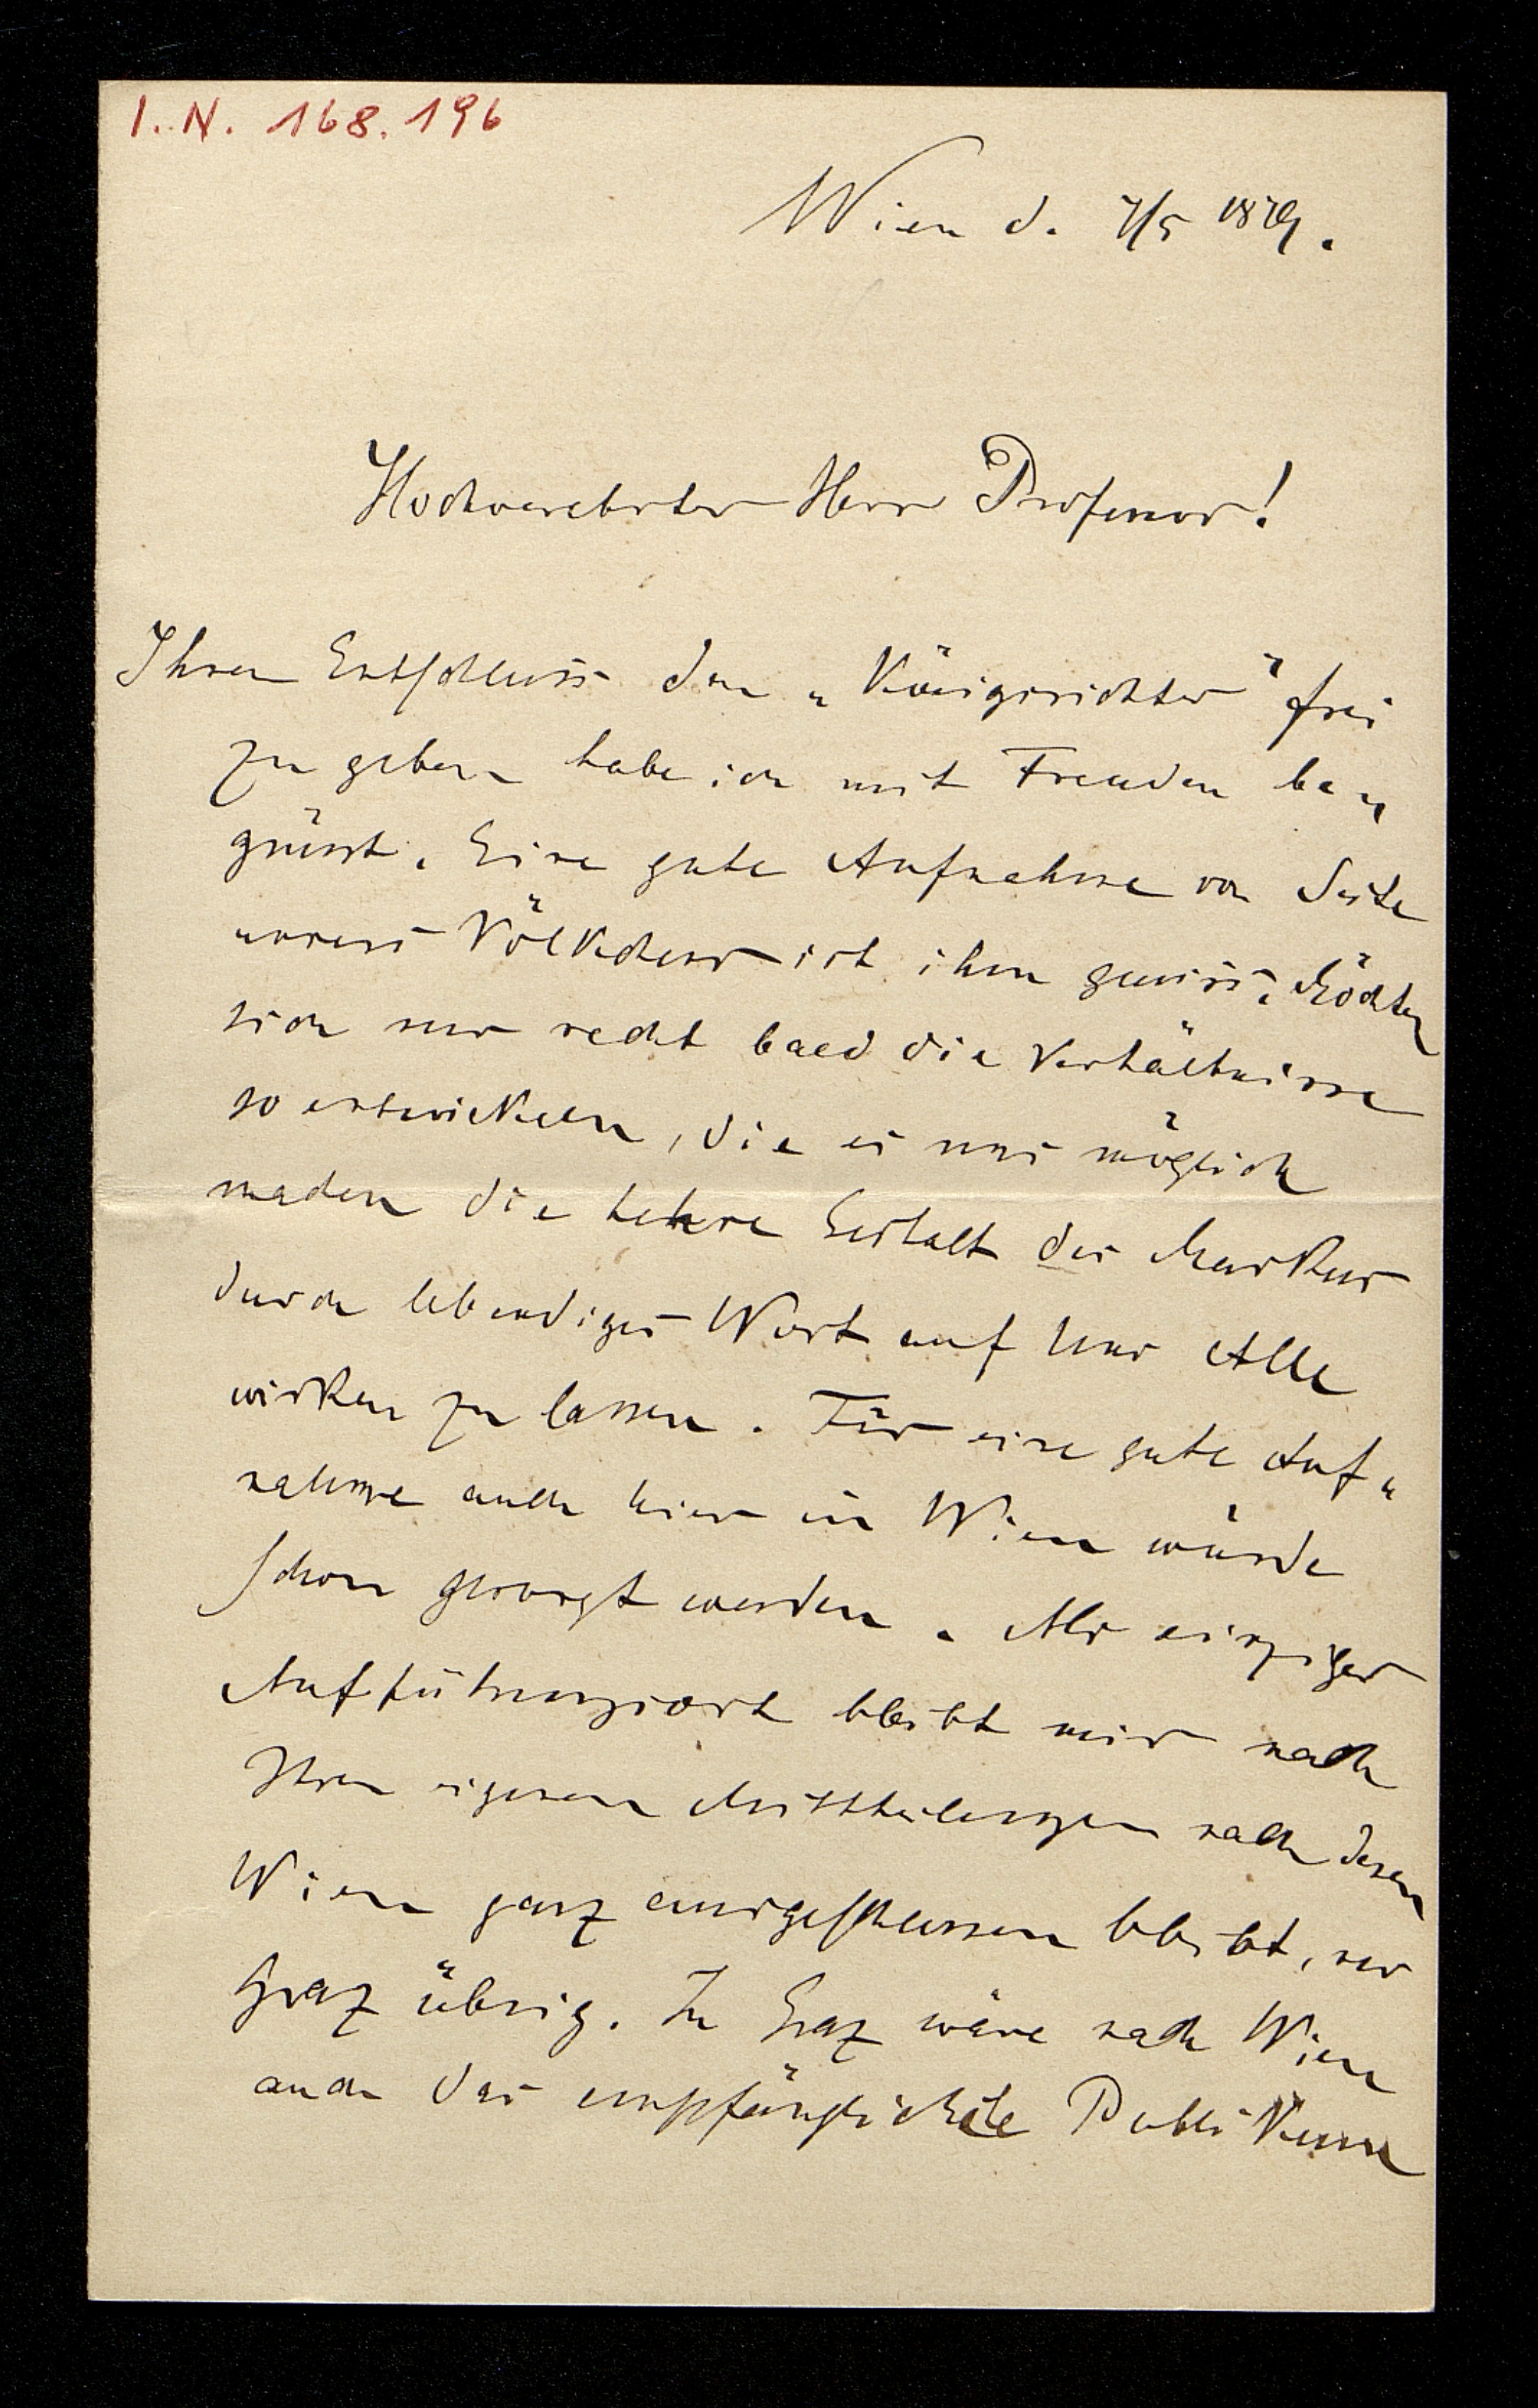 I. N. 168.196
Wien d. 7/5 1879.
Hochverehrter Herr Professor!
Ihren Entschluss den „Königsrichter" frei
zu geben habe ich mit Freuden be„
grüsst. Eine gute Aufnahme von Seite
unsres Völkchens ist ihm gewiss. Möchten
sich nur recht bald die Verhältnisse
so entwickeln, die es uns möglich
machen die hehre Gestalt des Markus
durch lebendiges Wort auf Uns Alle
wirken zu lassen. Für eine gute Auf„
nahme auch hier in Wien würde
schon gesorgt werden. Als einziger
Aufführungsort bleibt mir nach
Ihren eigenen Mittheilungen nach denen
Wien ganz ausgeschlossen bleibt, nur
Graz übrig. In Graz wäre nach Wien
auch das empfänglichste Publikum